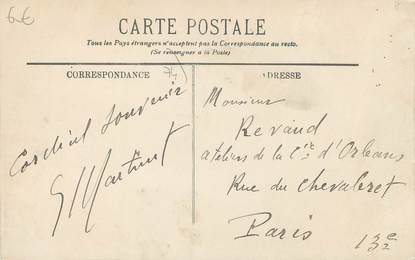 6€
CARTE POSTALE
Tous les Pays étrangers n'acceptent pas la Correspondance au recto.
(Se renseigner à la Poste)
CORRESPONDANCE
ADRESSE
Cordial souvenir
Martinet
Monsieur
Revaud
ateliers de la Cie d'Orléans
Rue du Chevaleret
Paris
13e